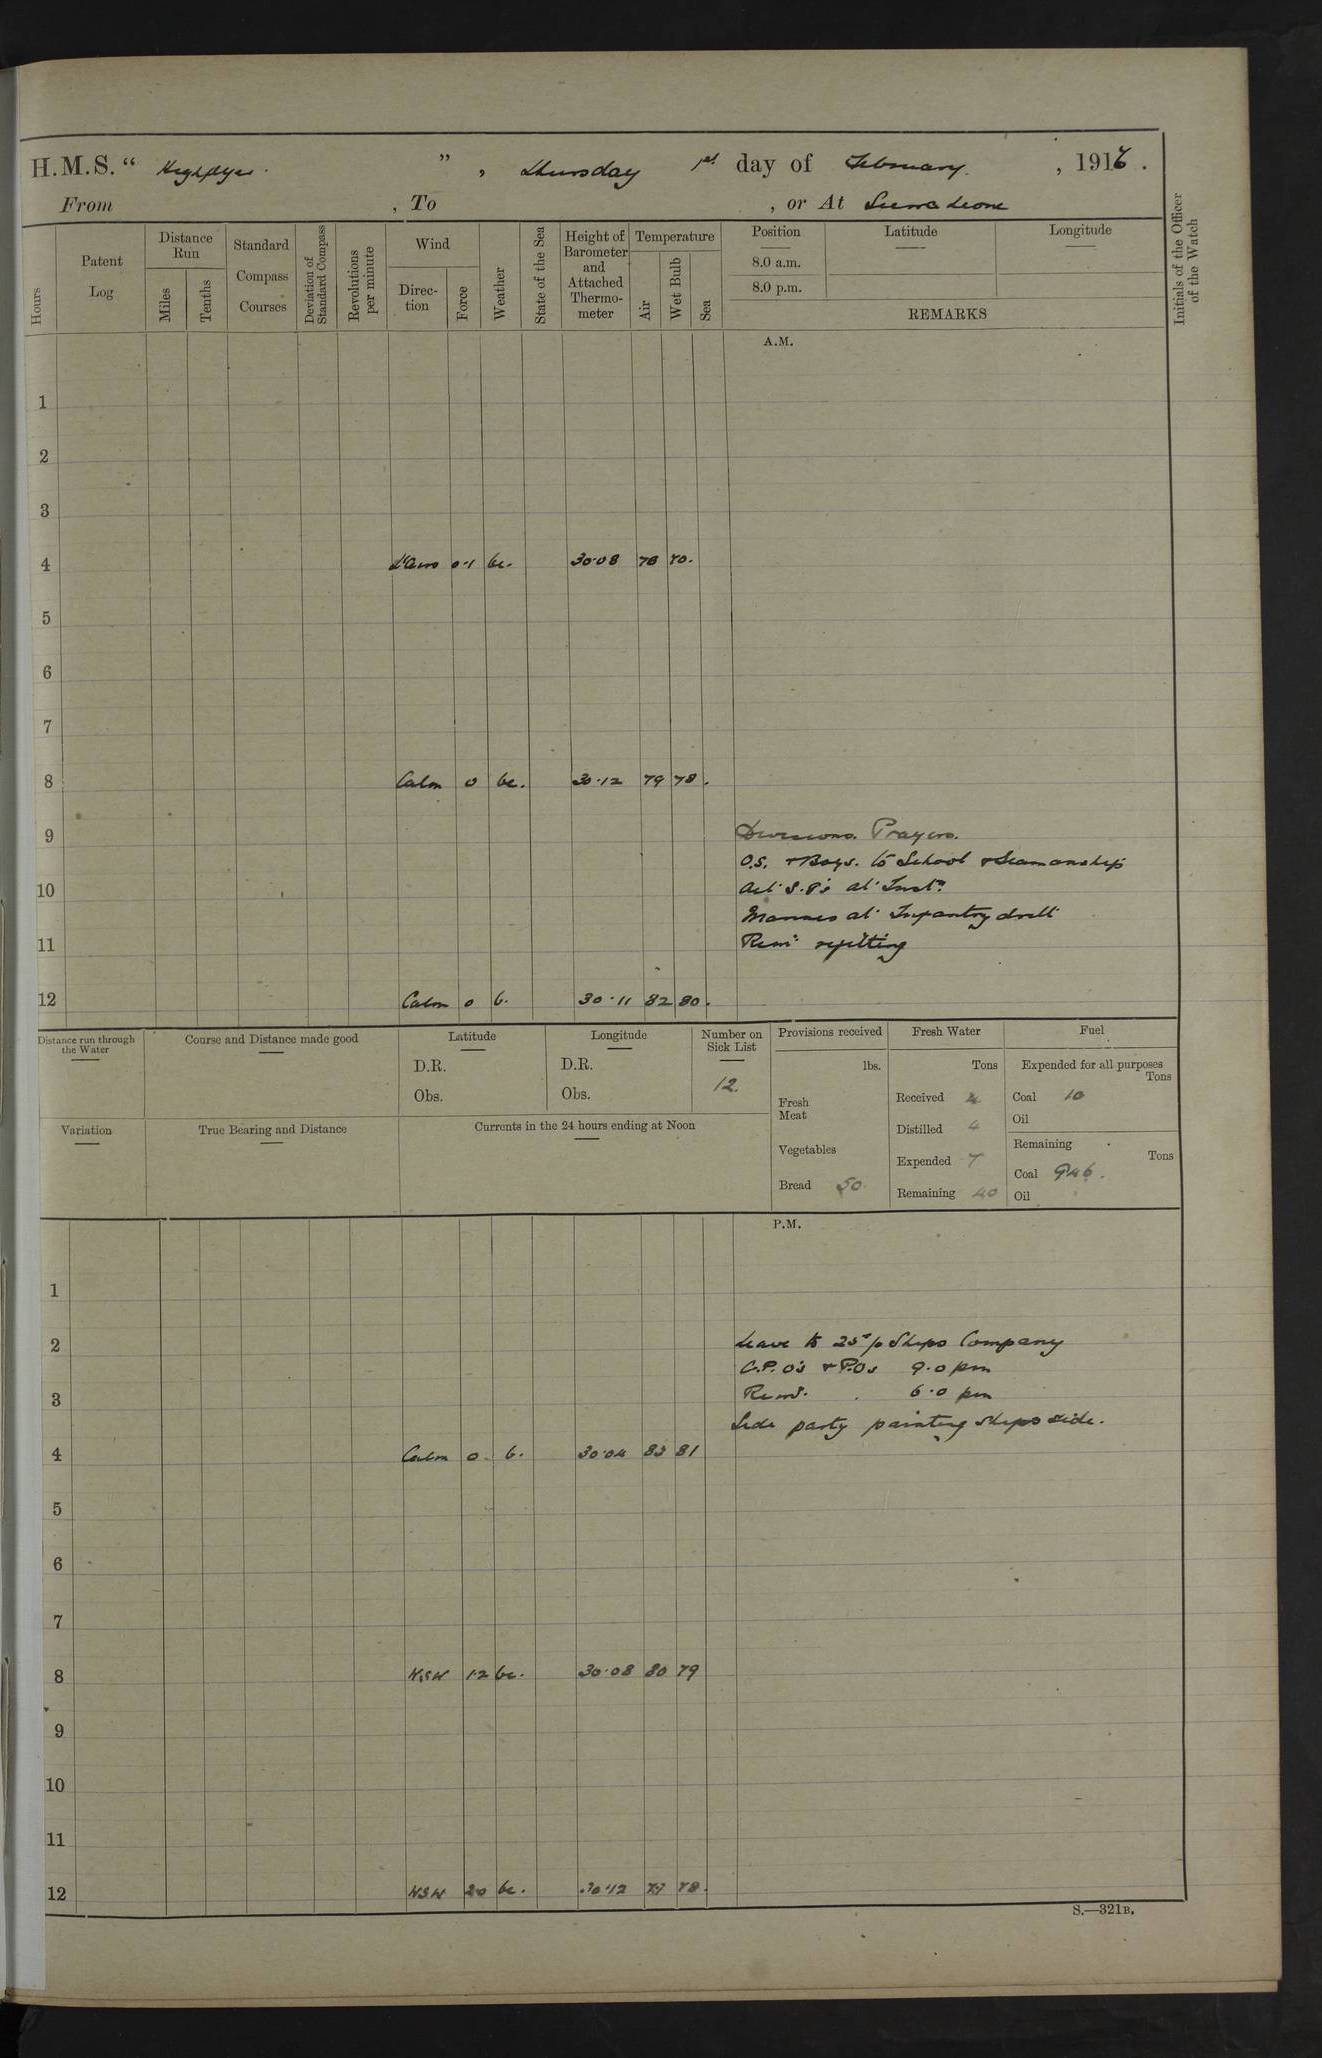 H.M.S. " Highflyer. " , Thursday 1st day of February. , 1917.
From , To , or At Sierra Leone
Hours
Patent Log
Distance Run
Miles
Tenths
Standard Compass Courses
Deviation of Standard Compass
Revolutions per minute
Wind
Direction
Force
Weather
State of the Sea
Height of Barometer and Attached Thermometer
Temperature
Air
Wet Bulb
Sea
Position
8.0 a.m.
8.0 p.m.
Latitude
Longitude
REMARKS
Initials of the Officer of the Watch
A.M.
1
2
3
4 0-1 bc. 30.08 78
5
6
7
8 Calm 0 bc. 30.12 79 78.
9 Divisions. Prayers.
O.S. & Boys. to School & Seamanship
10 Act. S.P's at Instn.
Marines at Infantry drill
11 Remr refitting
12 Calm 0 b. 30.11 82 80.
Distance run through the Water
Course and Distance made good
Latitude
D.R.
Obs.
Longitude
D.R.
Obs.
Number on Sick List
12.
Provisions received
lbs.
Fresh Meat
Vegetables
Bread 50.
Fresh Water
Tons
Received 4
Distilled 4
Expended 7
Remaining 40
Fuel
Expended for all purposes
Tons
Coal 10
Oil
Remaining
Tons
Coal 946.
Oil
Variation
True Bearing and Distance
Currents in the 24 hours ending at Noon
P.M.
1
2 Leave to 25 p Ships Company
C.P.O's & P.Os 9.0 pm
3 Remr. 6.0 pm
Side party painting ships side.
4 Calm 0. b. 30.04 83 81
5
6
7
8 WSW 12 bc. 30.08 80 79
9
10
11
12 WSW 20 bc. 30.12 78.
S.—321B.